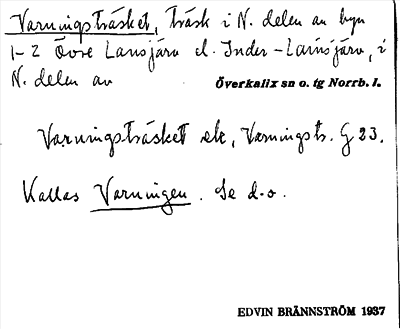 Varningsträsket, träsk i N. delen av byn
1-2 Övre Lansjärv el. Inder-Lansjärv, i
N. delen av Överkalix sn o. tg Norrb. l.
Varningsträsket ek, Varningstr. G 23.
Kallas Varningen. Se d.o.
EDVIN BRÄNNSTRÖM 1937